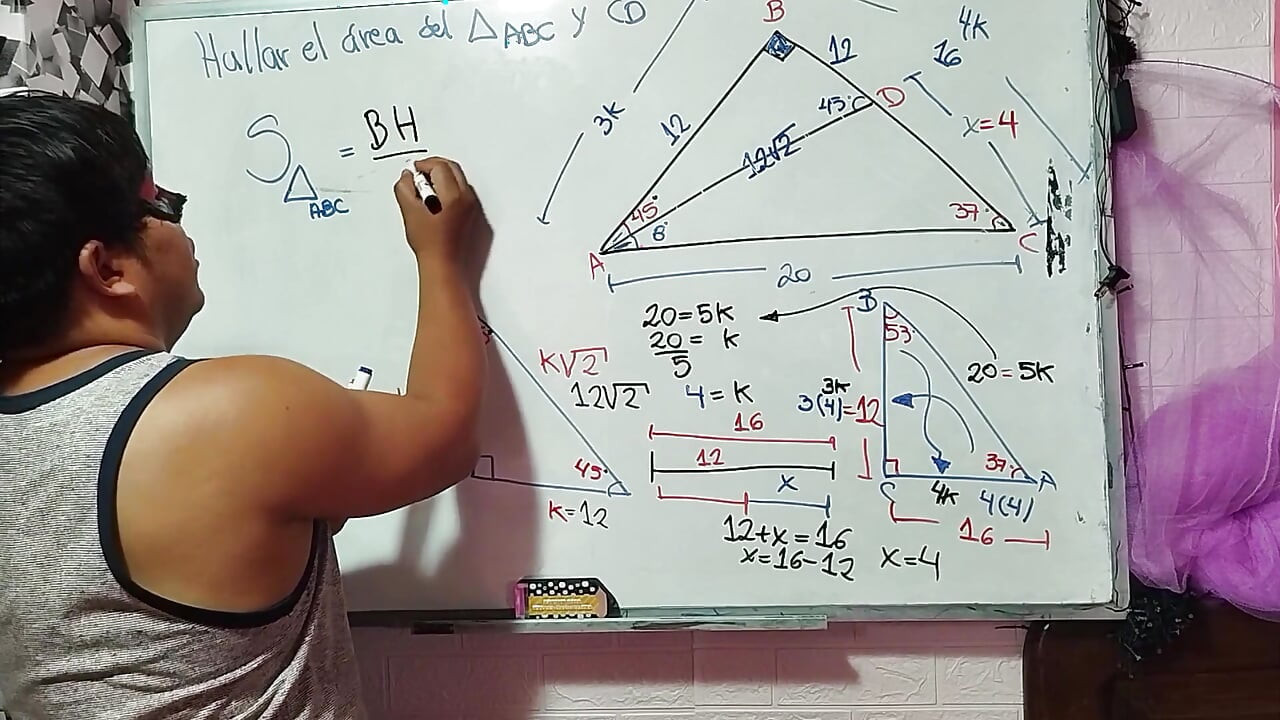 Hallar el área del △ABC y CD
S△ABC = BH
B
12
4K
16
3K
12
45°
D
x=4
12√2
45°
8°
37°
A
C
20
20=5K
20/5 = K
4=K
K√2
12√2
45°
K=12
16
12
x
12+x=16
x=16-12 x=4
B
53°
20=5K
3K
3(4)=12
37°
A
C
4K
4(4)
16